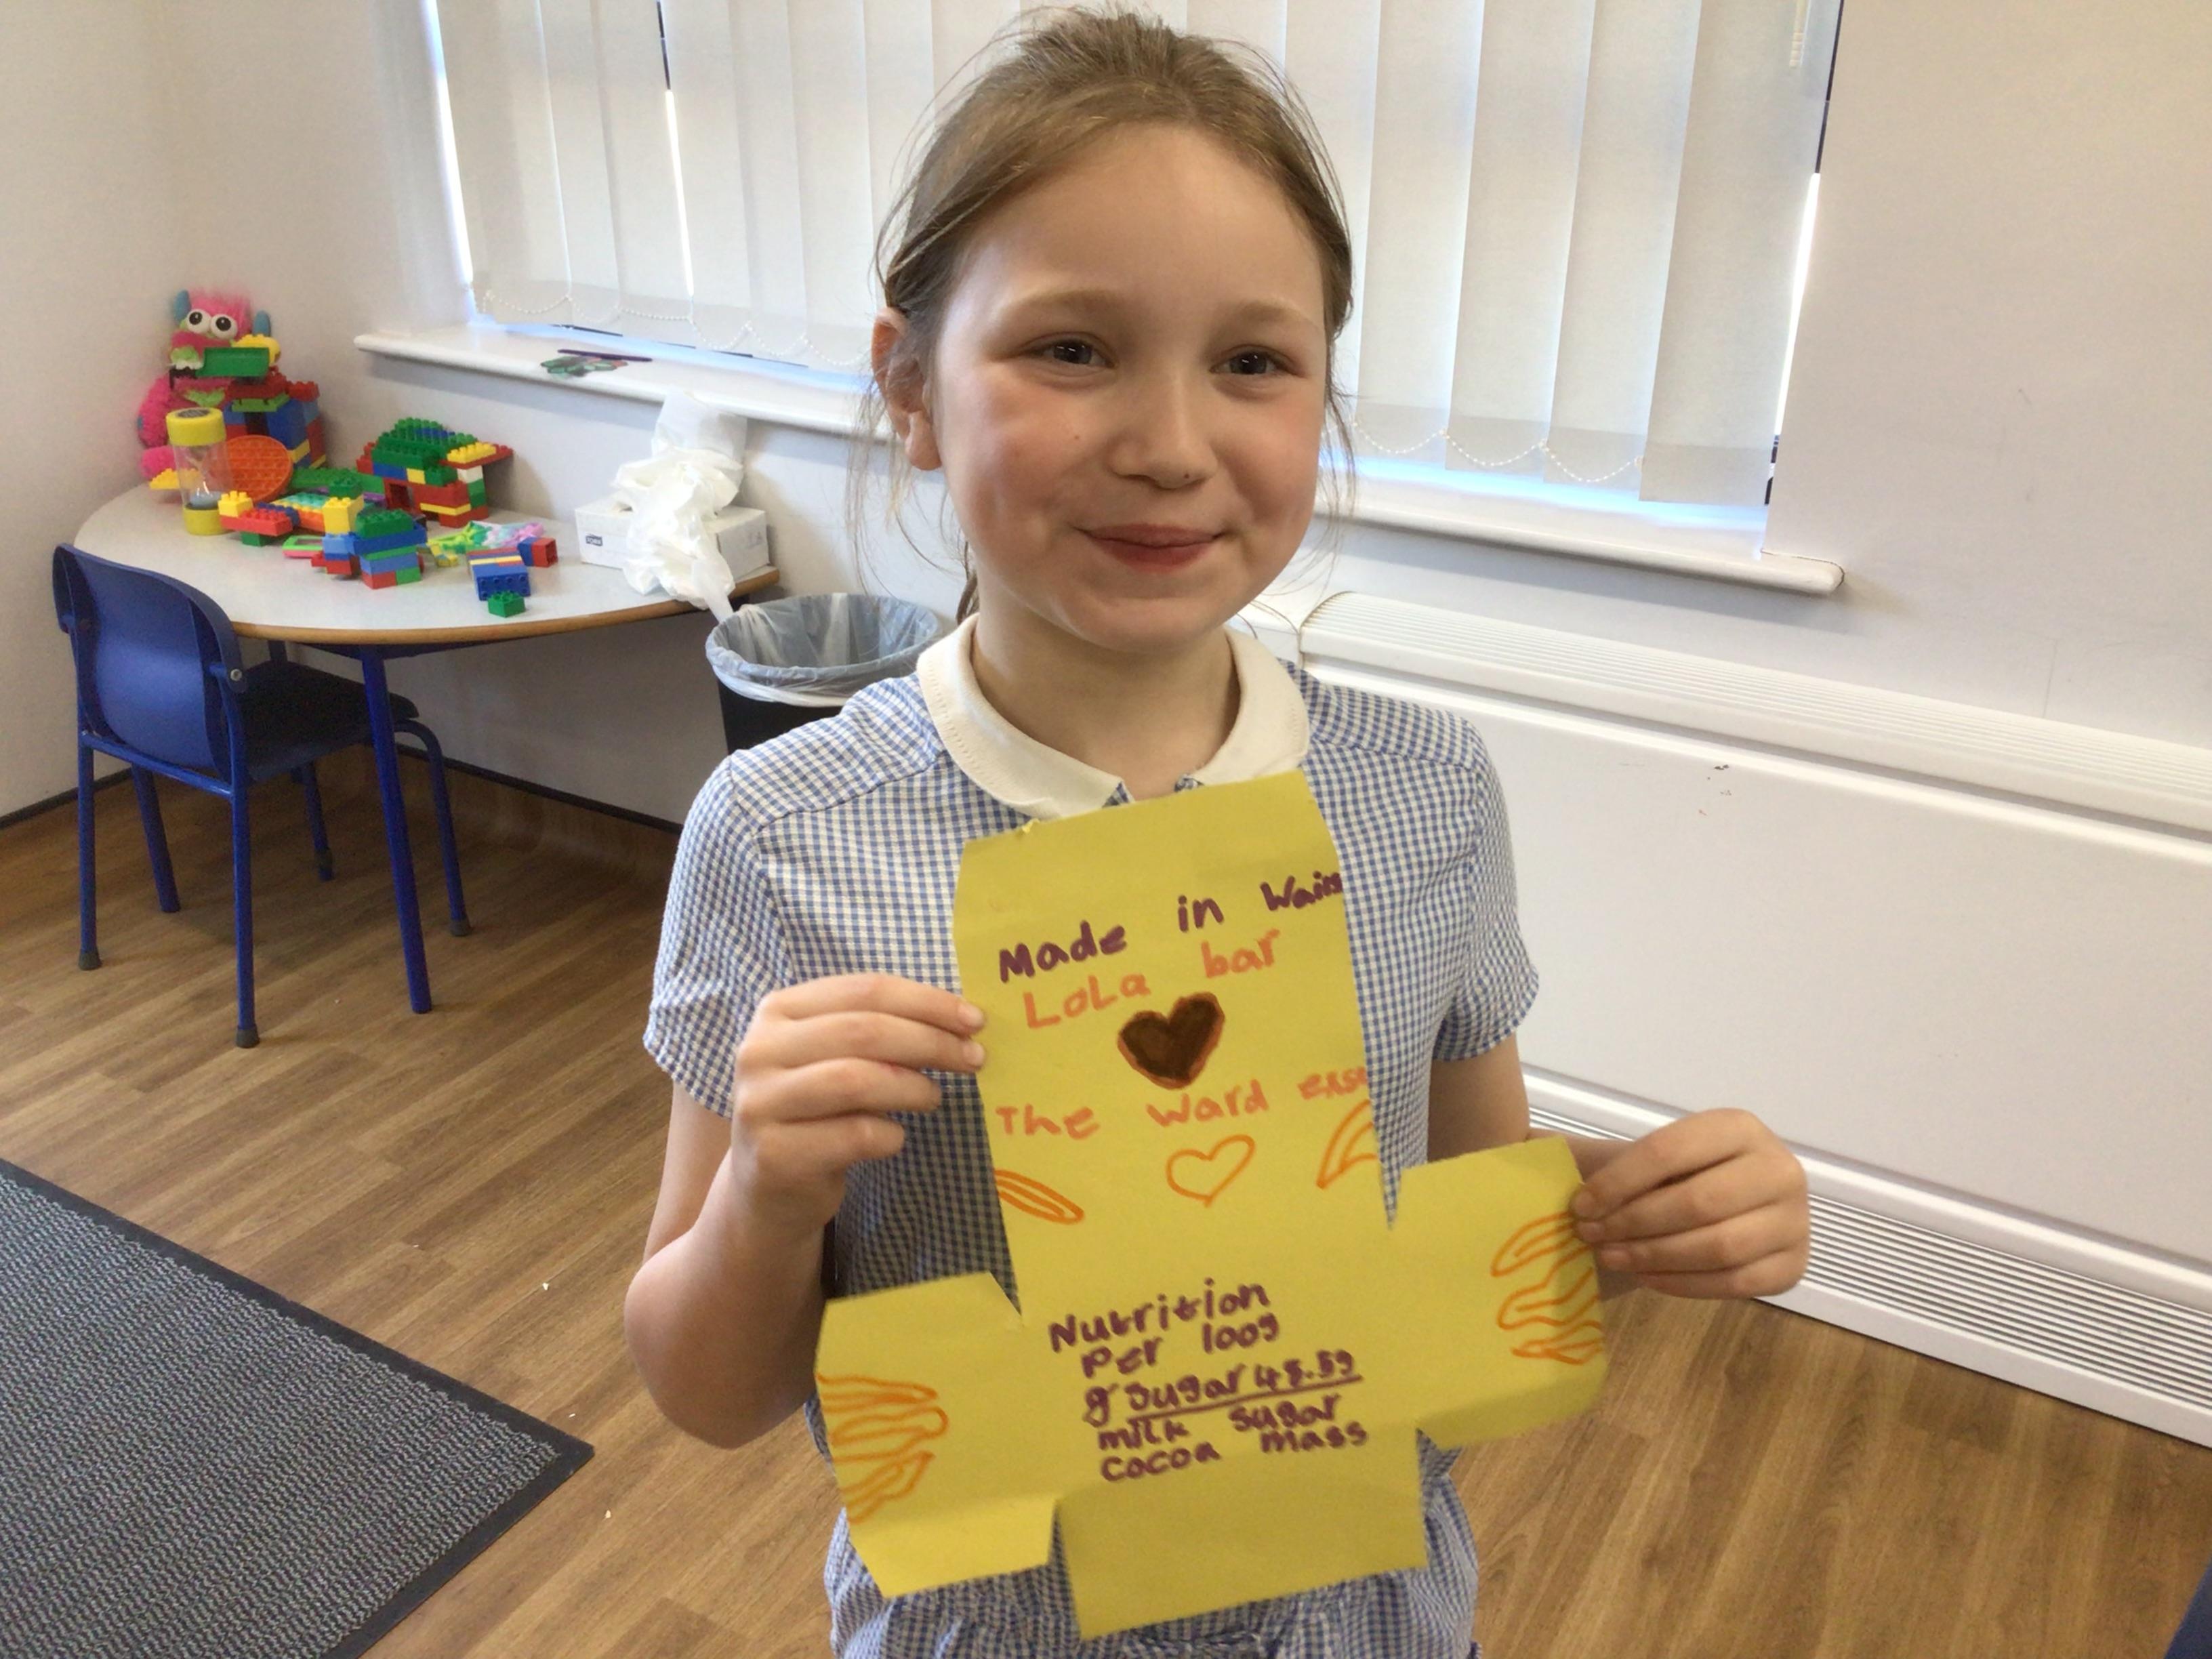 Made in
LoLa bar
The Ward
Nutrition
Per 100g
g sugar 48.5g
milk sugar
cocoa mass